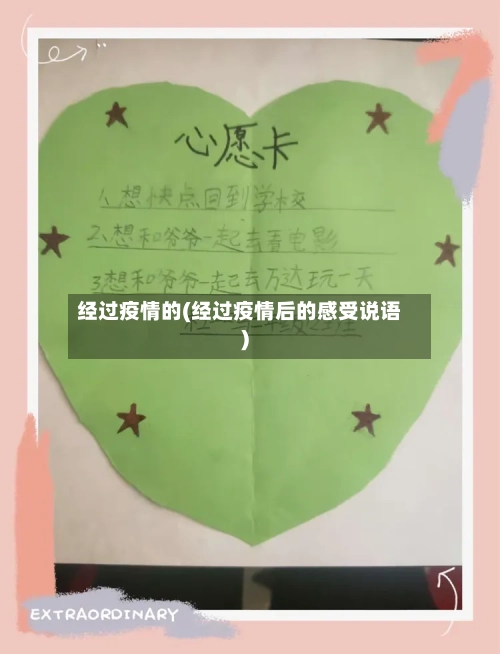 心愿卡
1、想快点回到学校
2、想和爷爷一起去看电影
3想和爷爷一起去万达玩一天
经过疫情的(经过疫情后的感受说语
)
EXTRAORDINARY